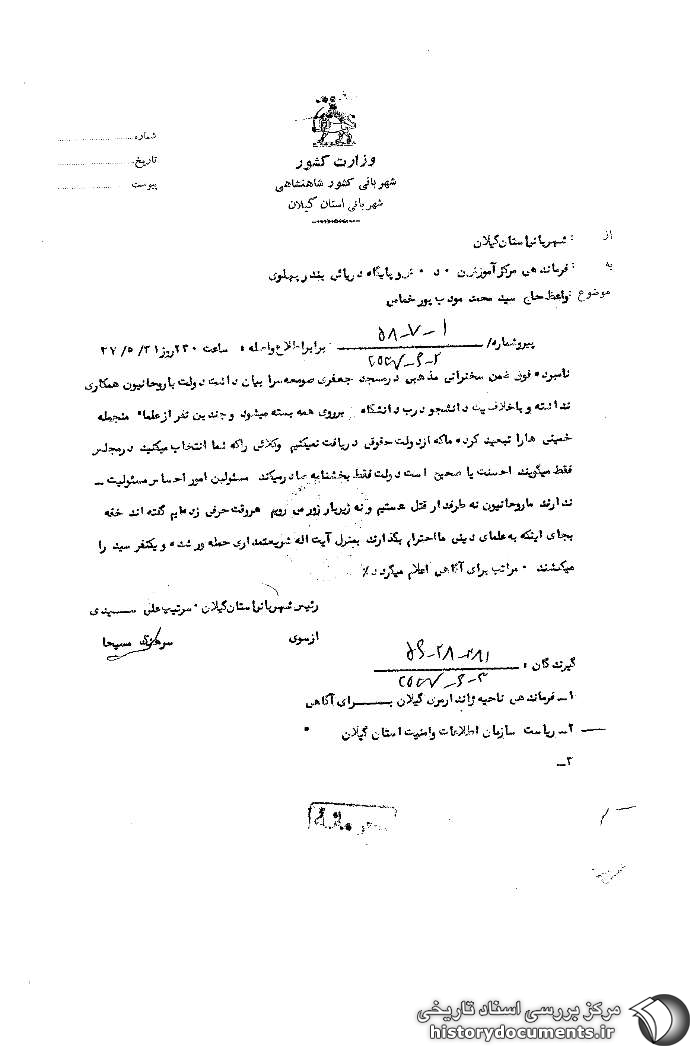 وزارت کشور
شهربانی کشور شاهنشاهی
شهربانی استان گیلان
شماره
تاریخ
پیوست
از : شهربانی استان گیلان
به : فرماندهی مرکز آموزش د نیرو پایگاه دریائی بندر پهلوی
موضوع : واعظ حاج سید محمد مودب پور خمامی
پیرو شماره / ۱-۷-۵۸ برابر اطلاع واصله ساعت ۲۳۰ روز ۳۱/ ۵/ ۳۷
۲-۶-۲۵۳۷
نامبرده فوق ضمن سخنرانی مذهبی در مسجد جعفری صومعه سرا بیان داشت دولت با روحانیون همکاری
نداشته و با خلافیت دانشجو درب دانشگاه بروی همه بسته میشود و چندین نفر از علما منجمله
خمینی ها را تبعید کرده ما که از دولت حقوقی دریافت نمیکنیم وکلائی را که شما انتخاب میکنید در مجلس
فقط میگویند احسنت یا صحیح است دولت فقط بخشنامه صادر میکند مسئولین امور احساس مسئولیت ـ
ندارند ما روحانیون نه طرفدار قتل هستیم و نه زیر بار زور می رویم هر وقت حرفی زده ایم گفته اند خفه
بجای اینکه به علمای دینی ما احترام بگذارند بمنزل آیت اله شریعتمداری حمله ور شده و یکنفر سید را
میکشند ۰ مراتب برای آگاهی اعلام میگردد٪
رئیس شهربانی استان گیلان ۰ سرتیپ علی سعیدی
از سوی سرهنگ مسیحا
گیرندگان :
۱ـ فرماندهی ناحیه ژاندارمری گیلان برای آگاهی
۲ـ ریاست سازمان اطلاعات و امنیت استان گیلان ۰
۳ـ
مرکز بررسی اسناد تاریخی
historydocuments.ir